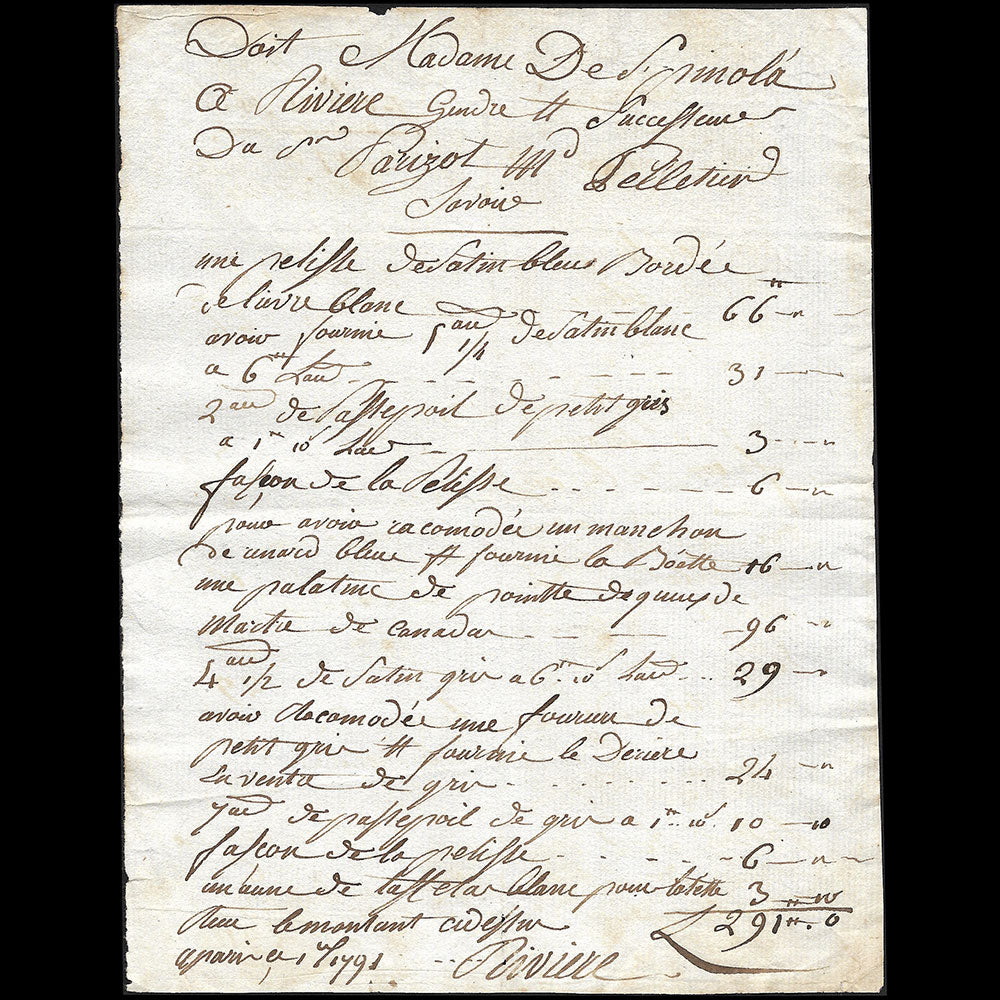 Doit Madame De Spinola
a Riviere Gendre et Successeur
Du Sr Parizot Md Pelletier
Savoir
une pelisse de Satin bleus Bordée
de lievre blanc 66 — "
avoir fournie 5 au 1/4 de Satin blanc
a 6tt Lau 31 —
2 au de passepoil de petit gris
a 1tt 10s Lau 3 — "
façon de la Pelisse 6 — "
pour avoir racomodée un manchon
de renard bleue et fournie la Boëtte 16 — "
une palatine de pointte de queues de
Martre de Canadas 96 "
4 au 1/2 de Satin gris a 6tt 10s Lau 29 — "
avoir Racomodée une fourure de
petit gris et fournie le Deriere
La ventre de gris 24 — "
7 au de passepoil de gris a 1tt 10s 10 — 10
façon de la pelisse 6 — "
un aune de taffetas blanc pour 3 — 10
Reçu le montant cidessus 291tt . 0
a paris ce 1791 Riviere